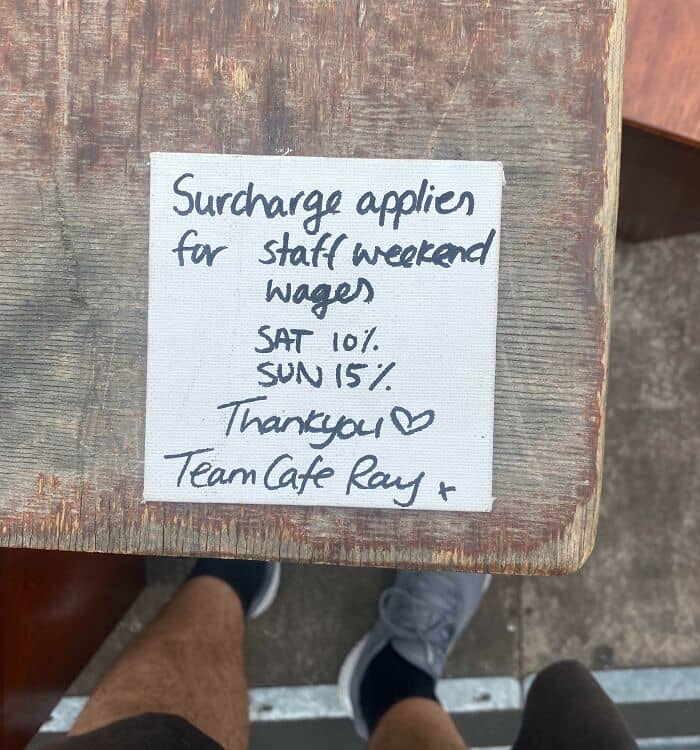 Surcharge applies
for staff weekend
wages
SAT 10%
SUN 15%
Thankyou♡
Team Cafe Ray x